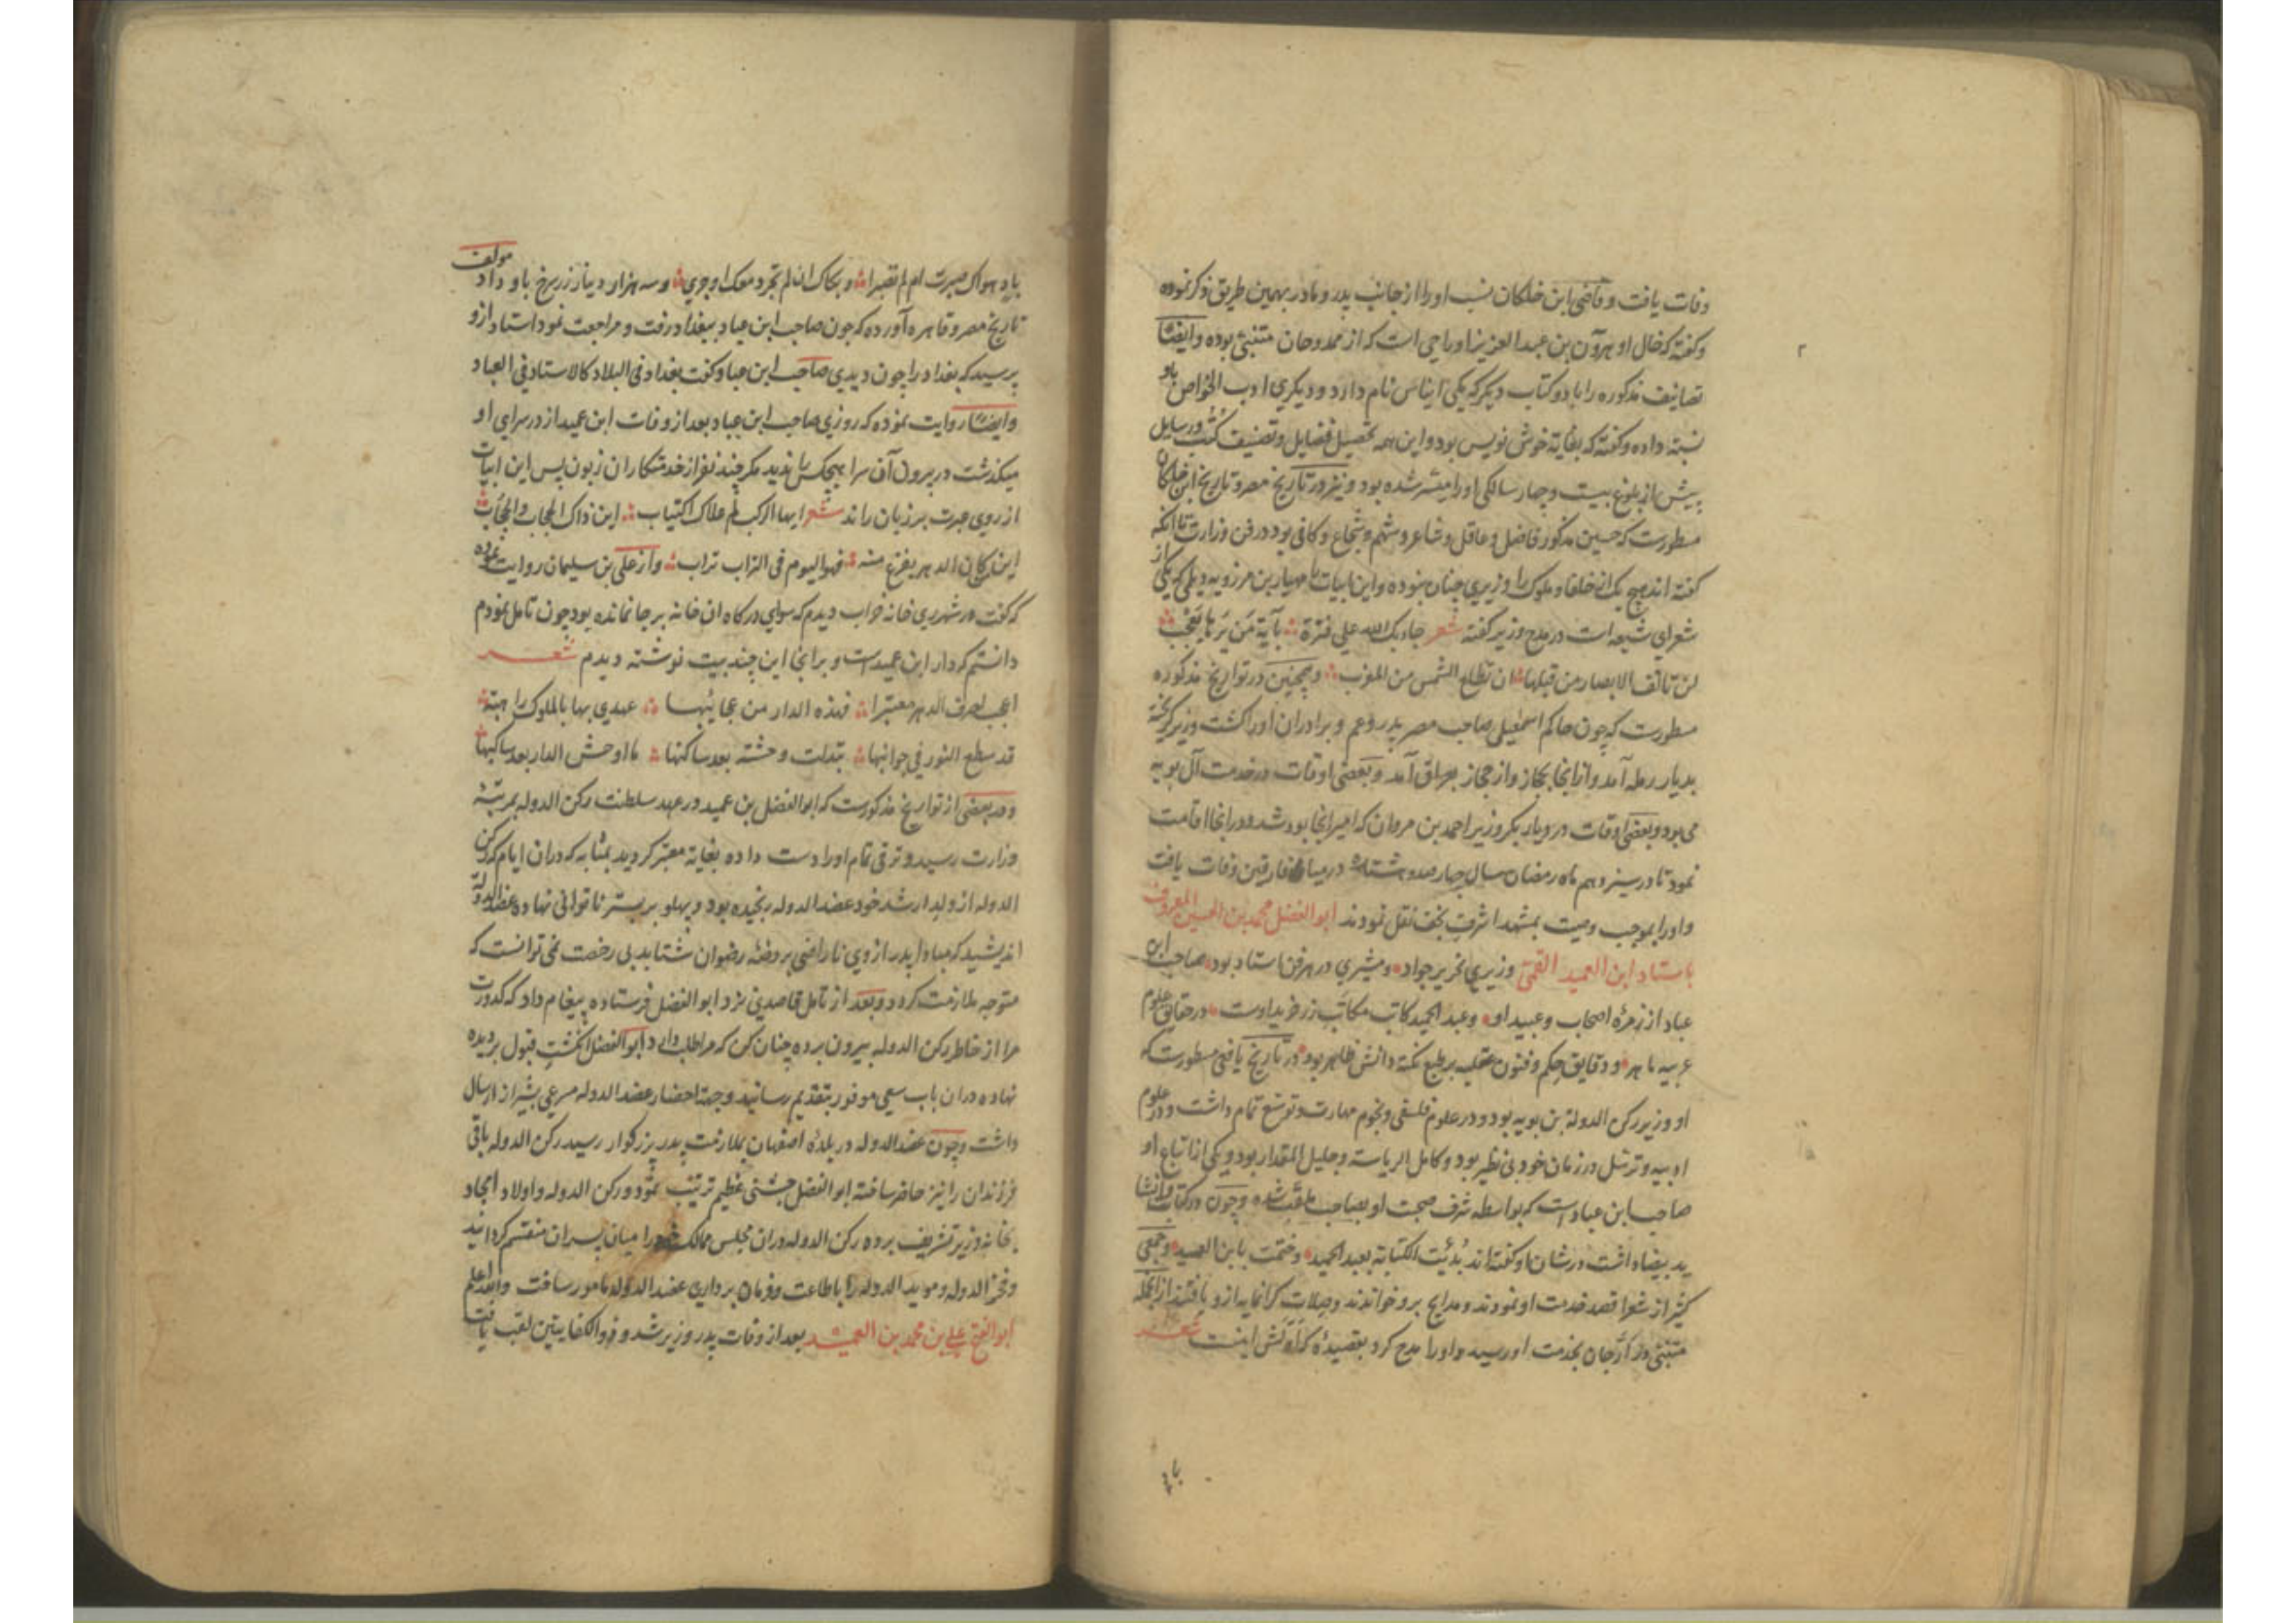 وفات یافت و قاضی ابن خلکان نسب او را از جانب پدر و مادر بهمین طریق ذکر نموده
و کفته که خال او هرون بن عبد العزیز اوراجی است که از ممدوحان متنبّی بوده و ایضًا
تصانیف مذکوره را با دو کتاب دیکر که یکی ایناس نام دارد و دیکری ادب الخواص باو
نسبة داده و کفته که بغایة خوش نویس بود و این همه تحصیل فضایل و تصنیف کتب و رسایل
پیش از بلوغ بیست و چهار سالکی او را میسّر شده بود و نیز در تاریخ مصر و تاریخ ابن خلکان
مسطورست که حسین مذکور فاضل و عاقل و شاعر و شهم و شجاع و کافی بود در فن وزارت تا آنکه
کفته اند هیچ یک از خلفا و ملوک را وزیری چنان نبوده و این ابیات را مهیار بن مرزویه دیلمی که یکی از
شعرای شیعه است در مدح وزیر کفته شعر جاء بک الله علی فترة بآیة من یرها یعجب
لن تالف الابصار من قبلها ان تطلع الشمس من المغرب و همچنین در تواریخ مذکوره
مسطورست که چون حاکم اسمعیلی صاحب مصر پدر و عم و برادران او را کشت وزیر کریخته
بدیار رمله آمد و از انجا بحجاز و از حجاز بعراق آمد و بعضی اوقات در خدمت آل بویه
می بود و بعضی اوقات در دیار بکر وزیر احمد بن مروان که امیر انجا بود شد و در انجا اقامت
نمود تا در سیزدهم ماه رمضان سال چهار صد و هشتاد در میافارقین وفات یافت
و او را بموجب وصیت بمشهد اشرف نجف نقل نمودند ابو الفضل محمد بن الحسین المعروف
باستاد ابن العمید القمی وزیری نحریر جواد و مشیری در هر فن استاد بود صاحب ابن
عباد از زمرهٔ اصحاب و عبید او و عبد الحمید کاتب مکاتب زر خرید اوست در حقایق علوم
عربیه ماهر و دقایق حکم و فنون عقلیه بر طبع نکته دانش ظاهر بود در تاریخ یافعی مسطورست که
او وزیر رکن الدولة بن بویه بود و در علوم فلسفی و نجوم مهارت و توسّع تمام داشت و در علوم
ادبیه و ترسّل در زمان خود بی نظیر بود و کامل الریاسة و جلیل المقدار بود و یکی از اتباع او
صاحب ابن عباد است که بواسطه شرف صحبت او بصاحب ملقّب شده و چون در کتابت و انشا
ید بیضا داشت در شان او کفته اند بُدئت الکتابة بعبد الحمید و ختمت بابن العمید و جمعی
کثیر از شعرا قصد خدمت او نمودند و مدایح برو خواندند و صلات کرانمایه ازو یافتند از انجمله
متنبّی در ارّجان بخدمت او رسید و او را مدح کرد بقصیدهٔ که اوّلش اینست شعر
باد
باد هواک صبرت ام لم تصبرا و بکاک ان لم تجر دمعک او جری و سه هزار دینار زر سرخ باو داد مولف
تاریخ مصر و قاهره آورده که چون صاحب ابن عباد ببغداد رفت و مراجعت نمود استاد ازو
پرسید که بغداد را چون دیدی صاحب ابن عباد کفت بغداد فی البلاد کالاستاد فی العباد
و ایضًا روایت نموده که روزی صاحب ابن عباد بعد از وفات ابن عمید از در سرای او
میکذشت در بیرون آن سرا هیچکس را ندید مکر چند نفر از خدمتکاران زبون پس این ابیات
از روی عبرت بر زبان راند شعر ایها الرکب لم علاک اکتیاب این ذاک الحجاب و الحجّاب
این من کان الدهر یفزع منه فهو الیوم فی التراب تراب و از علی بن سلیمان روایت نموده
که کفت در شهر ری خانه خراب دیدم که سوای درکاه ان خانه بر جا نمانده بود چون تامل نمودم
دانستم که دار ابن عمید است و بر انجا این چند بیت نوشته دیدم شعر
اعجب لصرف الدهر معتبرا فهذه الدار من عجائبها عهدی بها بالملوک زاهیة
قد سطع النور فی جوانبها تبدلت وحشة بعد ساکنها ما اوحش الدار بعد ساکنها
و در بعضی از تواریخ مذکورست که ابو الفضل بن عمید در عهد سلطنت رکن الدوله بمرتبهٔ
وزارت رسید و ترقی تمام او را دست داده بغایة معتبر کردید بمثابه که در ان ایام که رکن
الدوله از ولد ارشد خود عضد الدوله رنجیده بود و پهلو بر بستر ناتوانی نهاده عضد الدولة
اندیشید که مبادا پدر از وی ناراضی بروضهٔ رضوان شتابد بی رخصت نمی توانست که
متوجه ملازمت کردد و بعد از تامل قاصدی نزد ابو الفضل فرستاده پیغام داد که کدورت
مرا از خاطر رکن الدوله بیرون برده چنان کن که مرا طلب دارد ابو الفضل انکشت قبول بر دیده
نهاده در ان باب سعی موفور بتقدیم رسانید و جهة احضار عضد الدوله مسرعی بشیراز ارسال
داشت و چون عضد الدوله در بلدهٔ اصفهان بملازمت پدر بزرکوار رسید رکن الدوله باقی
فرزندان را نیز حاضر ساخته ابو الفضل جشنی عظیم ترتیب نمود و رکن الدوله و اولاد امجاد
بخانه وزیر تشریف برده رکن الدوله در ان مجلس ممالک خود را میان پسران منقسم کردانید
و فخر الدوله و موید الدوله را باطاعت و فرمان برداری عضد الدوله مامور ساخت و الله اعلم
ابو الفتح علی بن محمد بن العمید بعد از وفات پدر وزیر شد و ذو الکفایتین لقب یافت